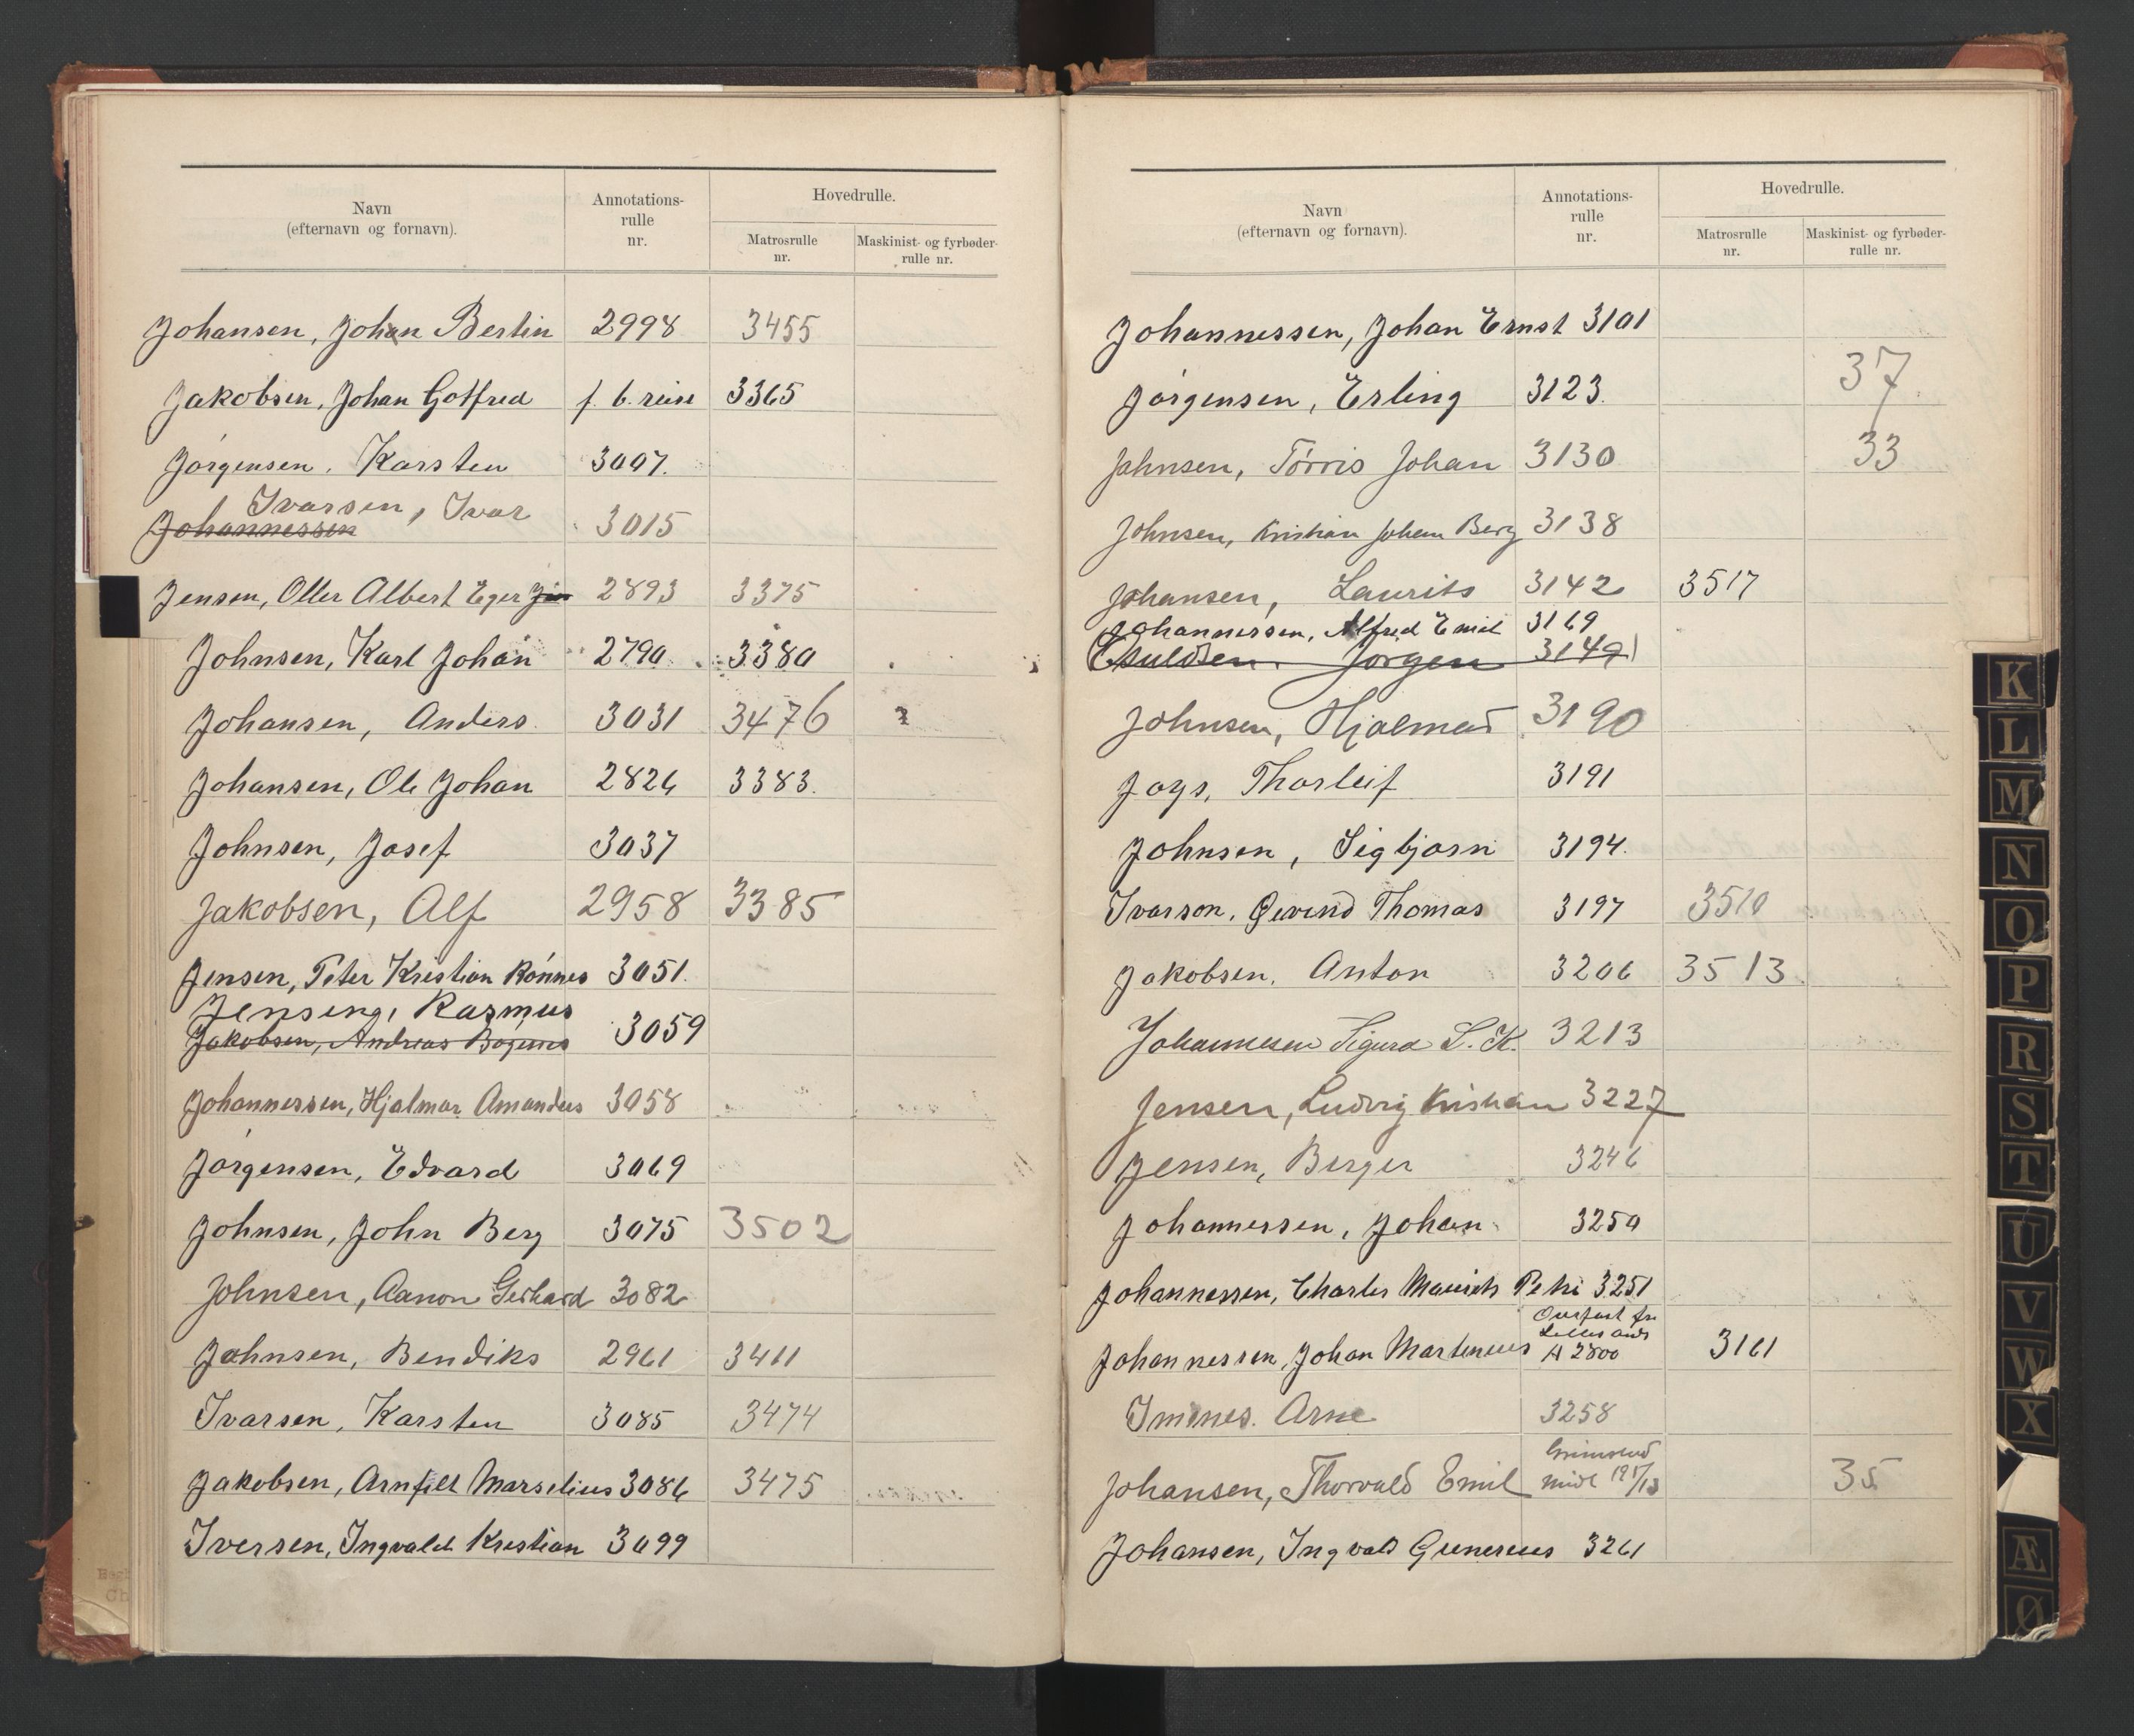 Navn
(efternavn og fornavn).
Annotations-
rulle
nr.
Hovedrulle.
Matrosrulle
nr.
Maskinist- og fyrbøder-
rulle nr.
Johansen, Johan Bertin 2998 3455
Jakobsen, Johan Gotfred f. b. reise 3365
Jørgensen, Karsten 3007.
Ivarsen, Ivar
Johannessen 3015
Jensen, Oller Albert Eger 2893 3375
Johnsen, Karl Johan 2790 3380
Johansen, Anders 3031 3476
Johansen, Ole Johan 2826 3383.
Johnsen, Josef 3037
Jakobsen, Alf 2958 3385
Jensen, Peter Kristian Rönnes 3051.
Jensing, Rasmus
Jakobsen, Andreas 3059
Johannessen, Hjalmar Amandus 3058
Jørgensen, Edvard 3069
Johnsen, John Berg 3075 3502
Johnsen, Aanon Gerhard 3082
Johnsen, Bendiks 2961 3411
Ivarsen, Karsten 3085 3474
Jakobsen, Arnfilt Marselius 3086 3475
Iversen, Ingvald Kristian 3099
Navn
(efternavn og fornavn).
Annotations-
rulle
nr.
Hovedrulle.
Matrosrulle
nr.
Maskinist- og fyrbøder-
rulle nr.
Johannessen, Johan Ernst 3101
Jörgensen, Erling 3123. 37
Johnsen, Törris Johan 3130 33
Johnsen, Kristian Johan Berg 3138
Johansen, Laurits 3142 3517
Johannessen, Alfred Emil 3169
Jørgen 3149
Johnsen, Hjalmar 3190
Joys, Thorleif 3191
Johnsen, Sigbjørn 3194.
Ivarson, Øivind Thomas 3197 3510
Jakobsen, Anton 3206 3513
Johannesen Sigurd L. K. 3213
Jensen, Ludvig Kristian 3227
Jensen, Berger 3246
Johannessen, Johan 3250
Johannessen, Charles Mauritz Petri 3251
Overført fra
Lillesand
Johannessen, Johan Martinius A 2800 3161
Imenes. Arne 3258
Grimstad
Johansen, Thorvald Emil midl 19 5/13 35
Johansen, Ingvald Gunerius 3261
K
L
M
N
O
P
R
S
T
U
V
W
X
Æ
Ø